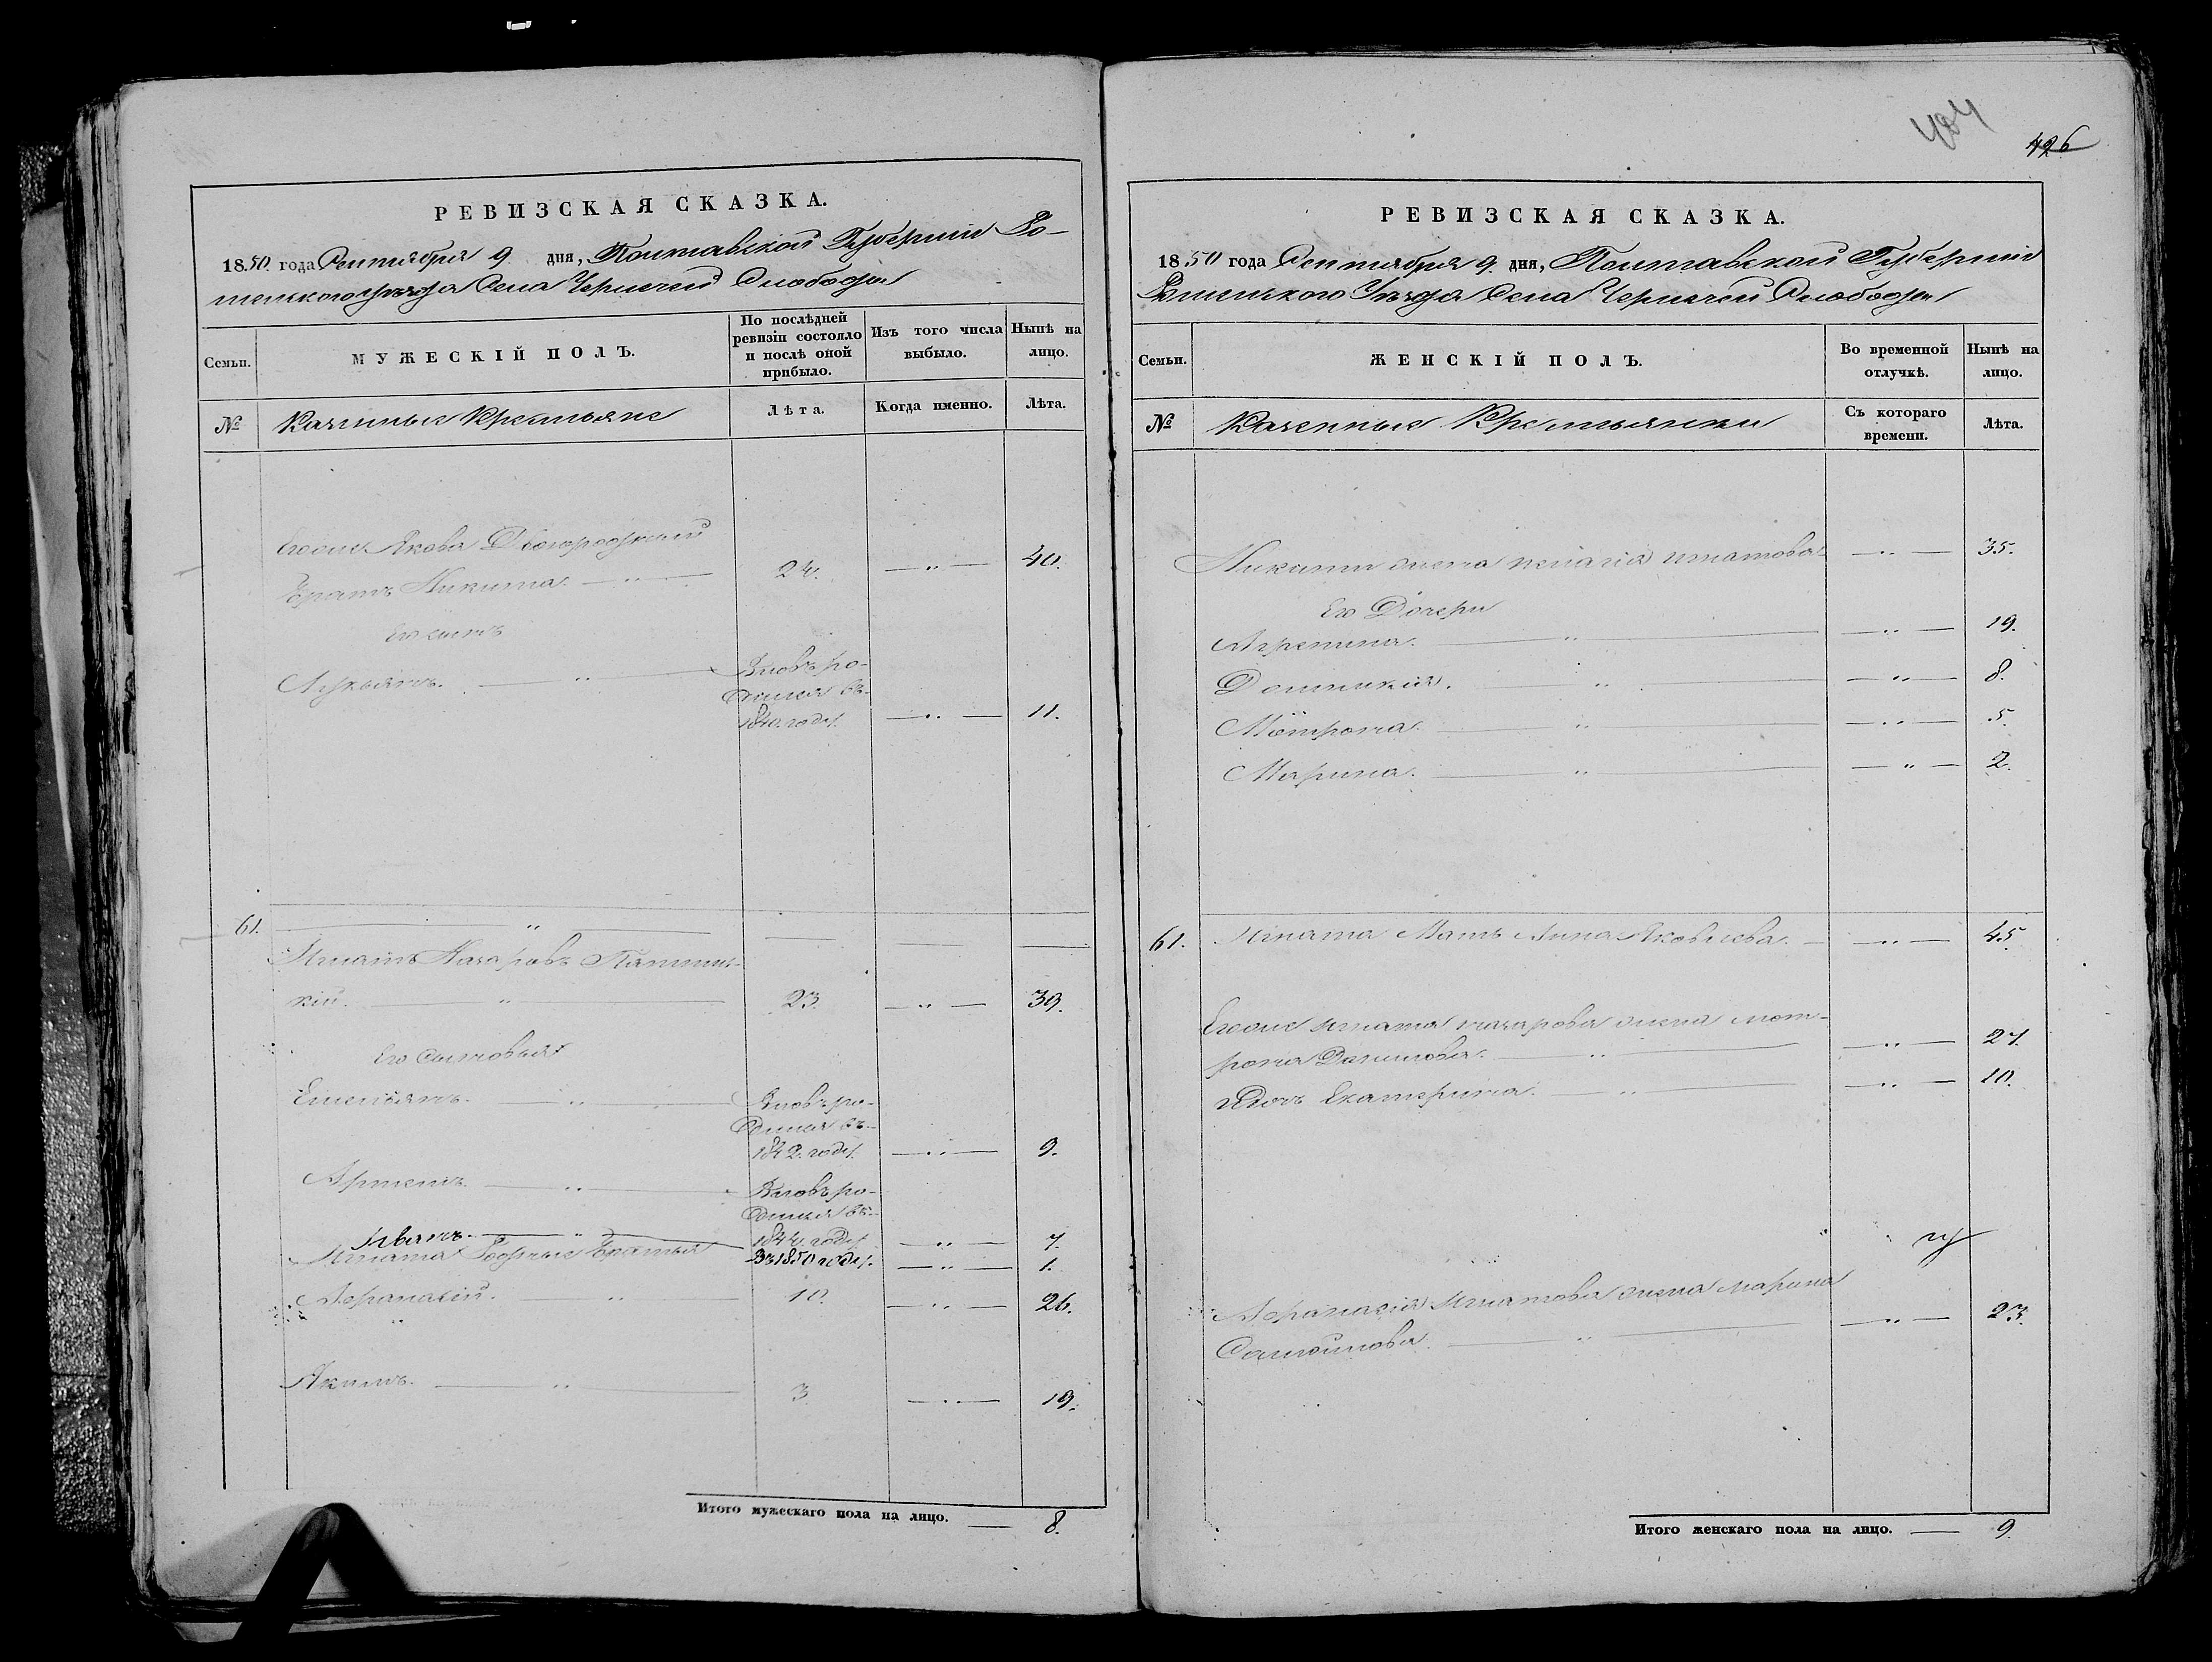 РЕВИЗСКАЯ СКАЗКА.
1850 года Сентября 9 дня, Полтавской Губернiи Ро-
менского уезда Села Чернечей Слободы
Семьи.
МУЖЕСКIЙ ПОЛЪ.
По послѣдней ревизiи состояло и послѣ оной прибыло.
Изъ того числа выбыло.
Нынѣ на лицо.
№
Казенные Крестьяне
Лѣта.
Когда именно.
Лѣта.
Его же Якова
братъ Никита. — „ — 24. — „ — 40.
Его сынъ
Лукьянъ. — „ — Вновь ро-
дился въ
1840. году. — „ — 11.
61. — „ —
Игнатъ Назаровъ
кiй. — „ — 23. — „ — 39.
Его сыновья
Емельянъ. — „ — Вновь ро-
дился въ
1842. году. — „ — 9.
Артемъ. — „ — Вновь ро-
дился въ
1844. году — „ — 7.
Иванъ. — „ — Въ 1850 году. — „ — 1.
Игната Родные братья
Афанасiй. — „ — 10. — „ — 26.
Акимъ. — „ — 3 — „ — 19.
Итого мужескаго пола на лицо. — 8.
424
426
РЕВИЗСКАЯ СКАЗКА.
1850 года Сентября 9. дня, Полтавской Губернiи
Роменского Уезда Села Чернечей Слободы
Семьи.
ЖЕНСКIЙ ПОЛЪ.
Во временной отлучкѣ.
Нынѣ на лицо.
№
Казенные Крестьянки
Съ котораго времени.
Лѣта.
Никиты жена пелагiя игнатова — „ — 35.
Его Дочери
Агрепина. — „ — — „ — 19.
Домникiя. — „ — — „ — 8.
Мотрона. — „ — — „ — 5.
Марина. — „ — — „ — 2.
61. Игната Мать Анна Яковлева. — — „ — 45
Его же игната назарова жена мот-
рона Данилова. — „ — — „ — 27.
Дочь Екатерина. — „ — — „ — 10.
Афанасiя Игнатова жена марина
Самойлова. — „ — — „ — 23.
Итого женскаго пола на лицо. — 9.